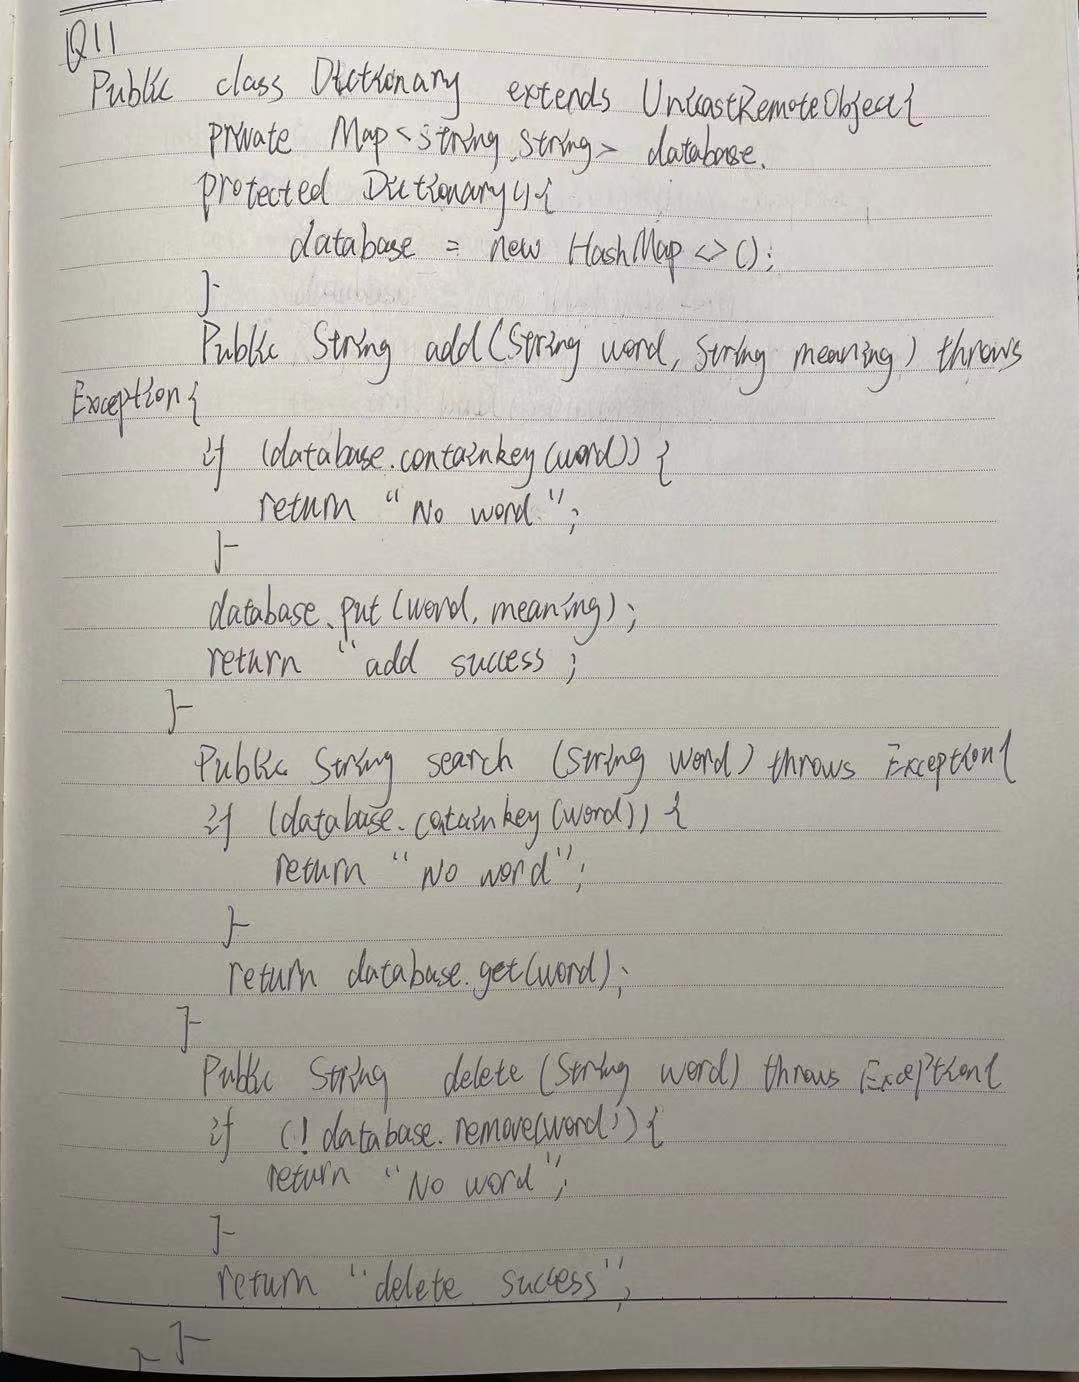 Q11
Public class Dictionary extends UnicastRemoteObject{
private Map<string,String> database.
protected Dictionary(){
database = new HashMap<>();
}
Public String add(String word, String meaning) throws
Exception{
if (database.containkey(word)) {
return "No word";
}
database.put(word, meaning);
return "add success ;
}
Public String search (String word) throws Exception{
if (database.catainkey(word)) {
return "No word";
}
return database.get(word);
}
Public String delete (String word) throws Exception{
if (!database.remove(word)){
return "No word";
}
return "delete success";
}
}